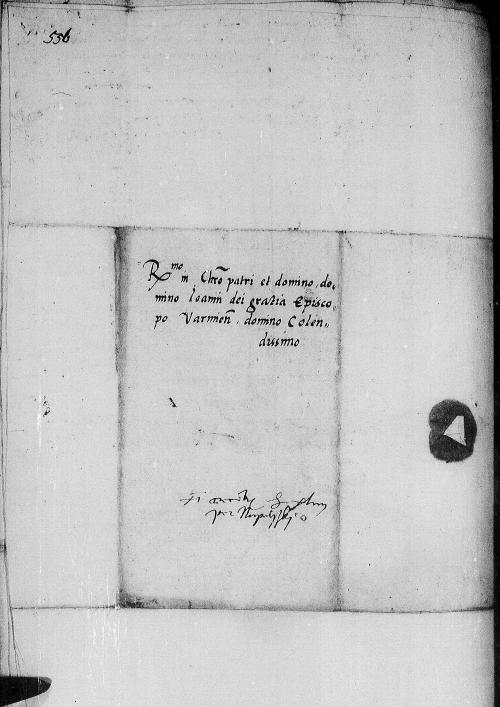 556
R<sup>mo</sup> in Chrō patri et domino, do,
mino Ioanni dei gratia Episco,
po Varmień. domino Colen,,
dissimo
per